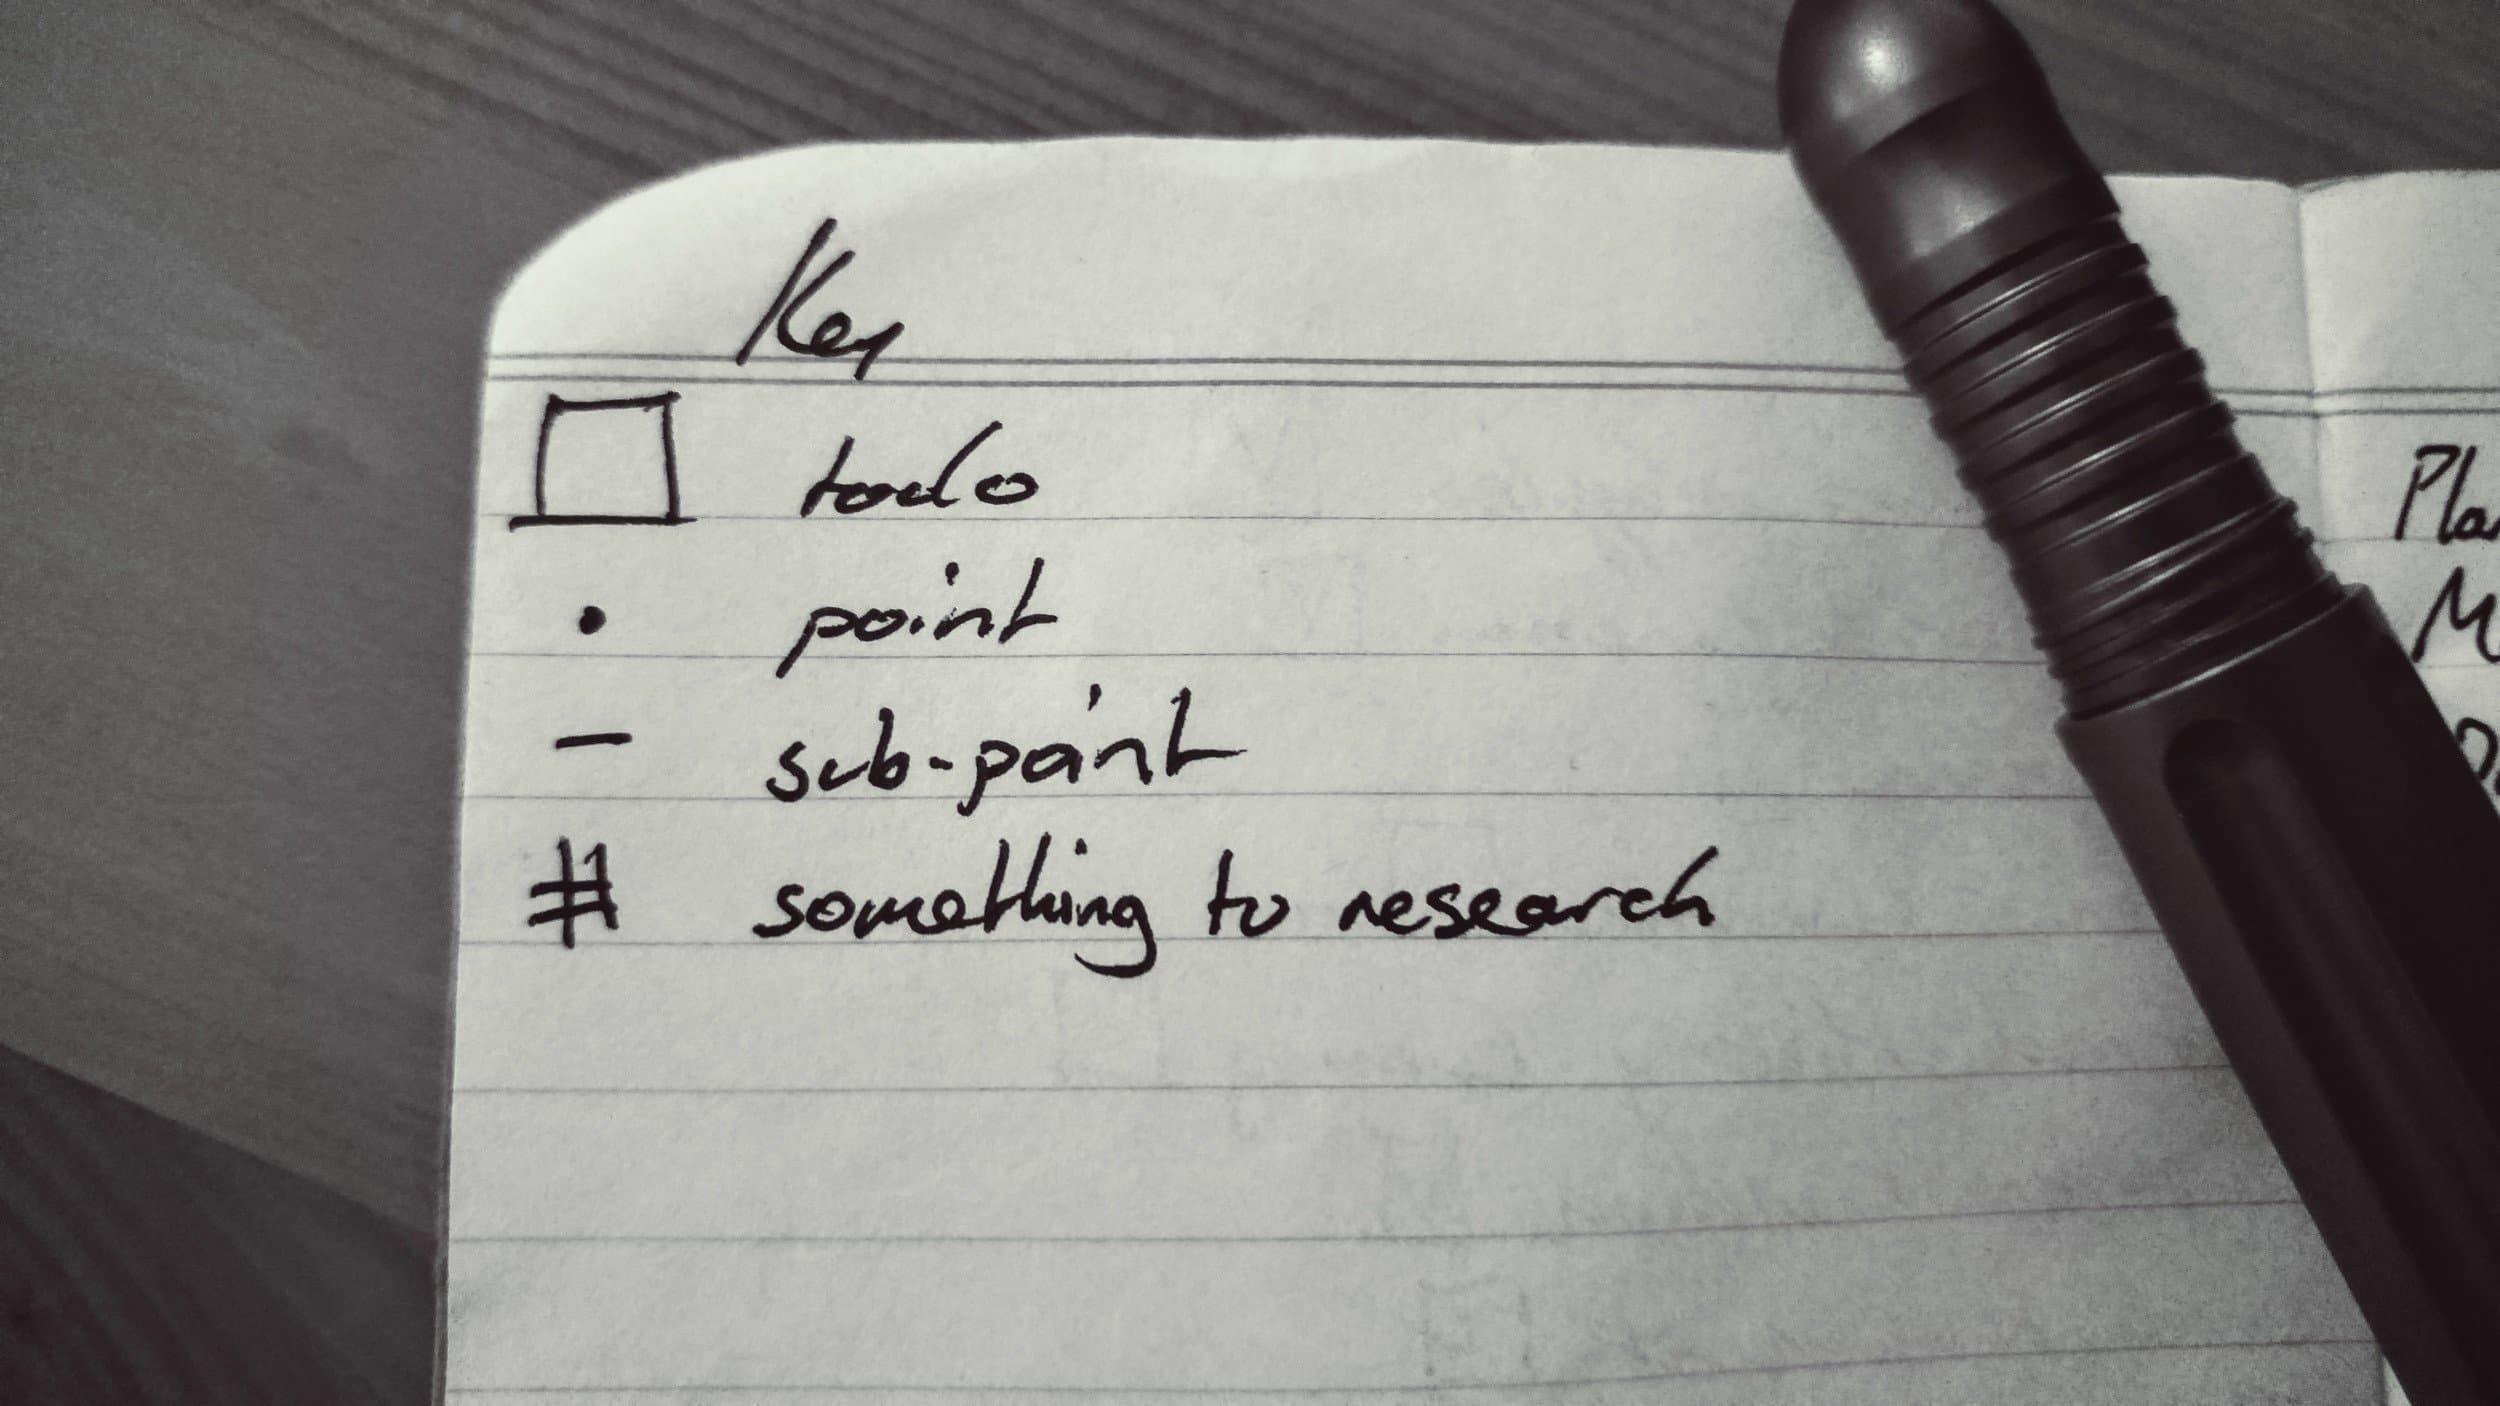 Key
□ todo
• point
– sub-point
# something to research